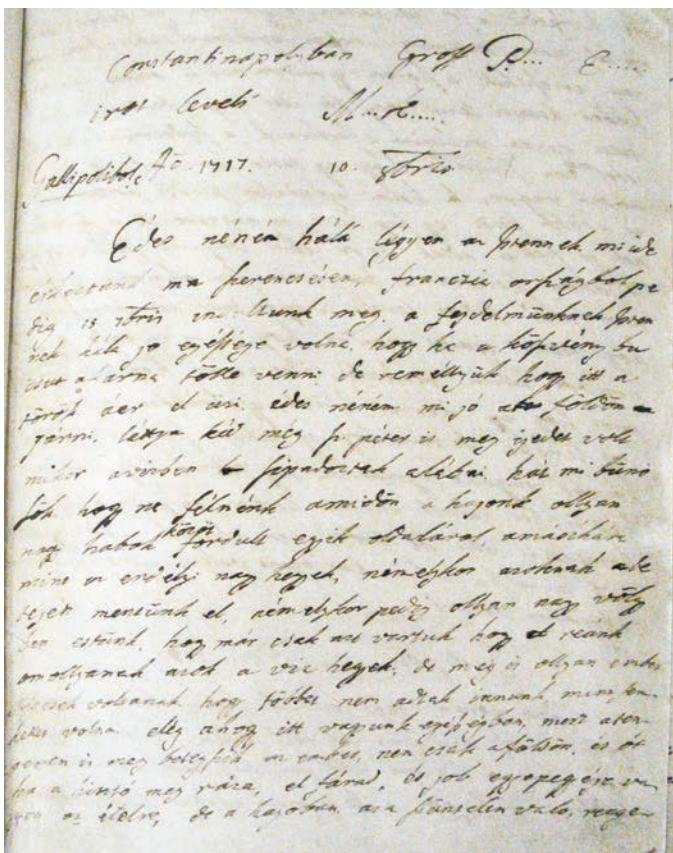 Constantinapolyban Groff P... E.....
irot leveli M...K.....
Gallipolibol, Ao 1717. 10. 8bris
Édes néném hálá légyen az Istennek mi ide
érkeztünk ma szerencsésen, francziia országbol pe
dig 15 7bris indultunk meg, a fejedelmünknek Isten
nek hálá jo egésége volna, hogy ha a köszvény bu
csut akarna tölle venni, de reméllyük hogy itt a
török áer el üzi. édes néném, mi jó a földön
járni. láttya kéd még sz péter is meg ijedet volt
mikor a vizben sipadoztak alábai, hát mi bünö
sök hogy ne félnénk amidön a hajonk ollyan
nagy habok közöt fordult egyik oldaláról a másikára
mint az erdélyi nagy hegyek, némelykor azoknak a te
tején mentünk el, némelykor pedig ollyan nagy völgy
ben estünk, hogy már csak azt vártuk hogy reánk
omollyanak azok a viz hegyek, de még is ollyan ember
ségesek voltanak hogy többet nem adtak innunk, mint sem
kellett volna. elég ahog itt vagyunk egéségben, mert a ten
geren is meg betegszik az ember, nem csak a földön, és ot
ha a hintó meg rázza, el fárad, és job egyepegyésé va
gyon az ételre, de a hajoban az a szüntelen valo,